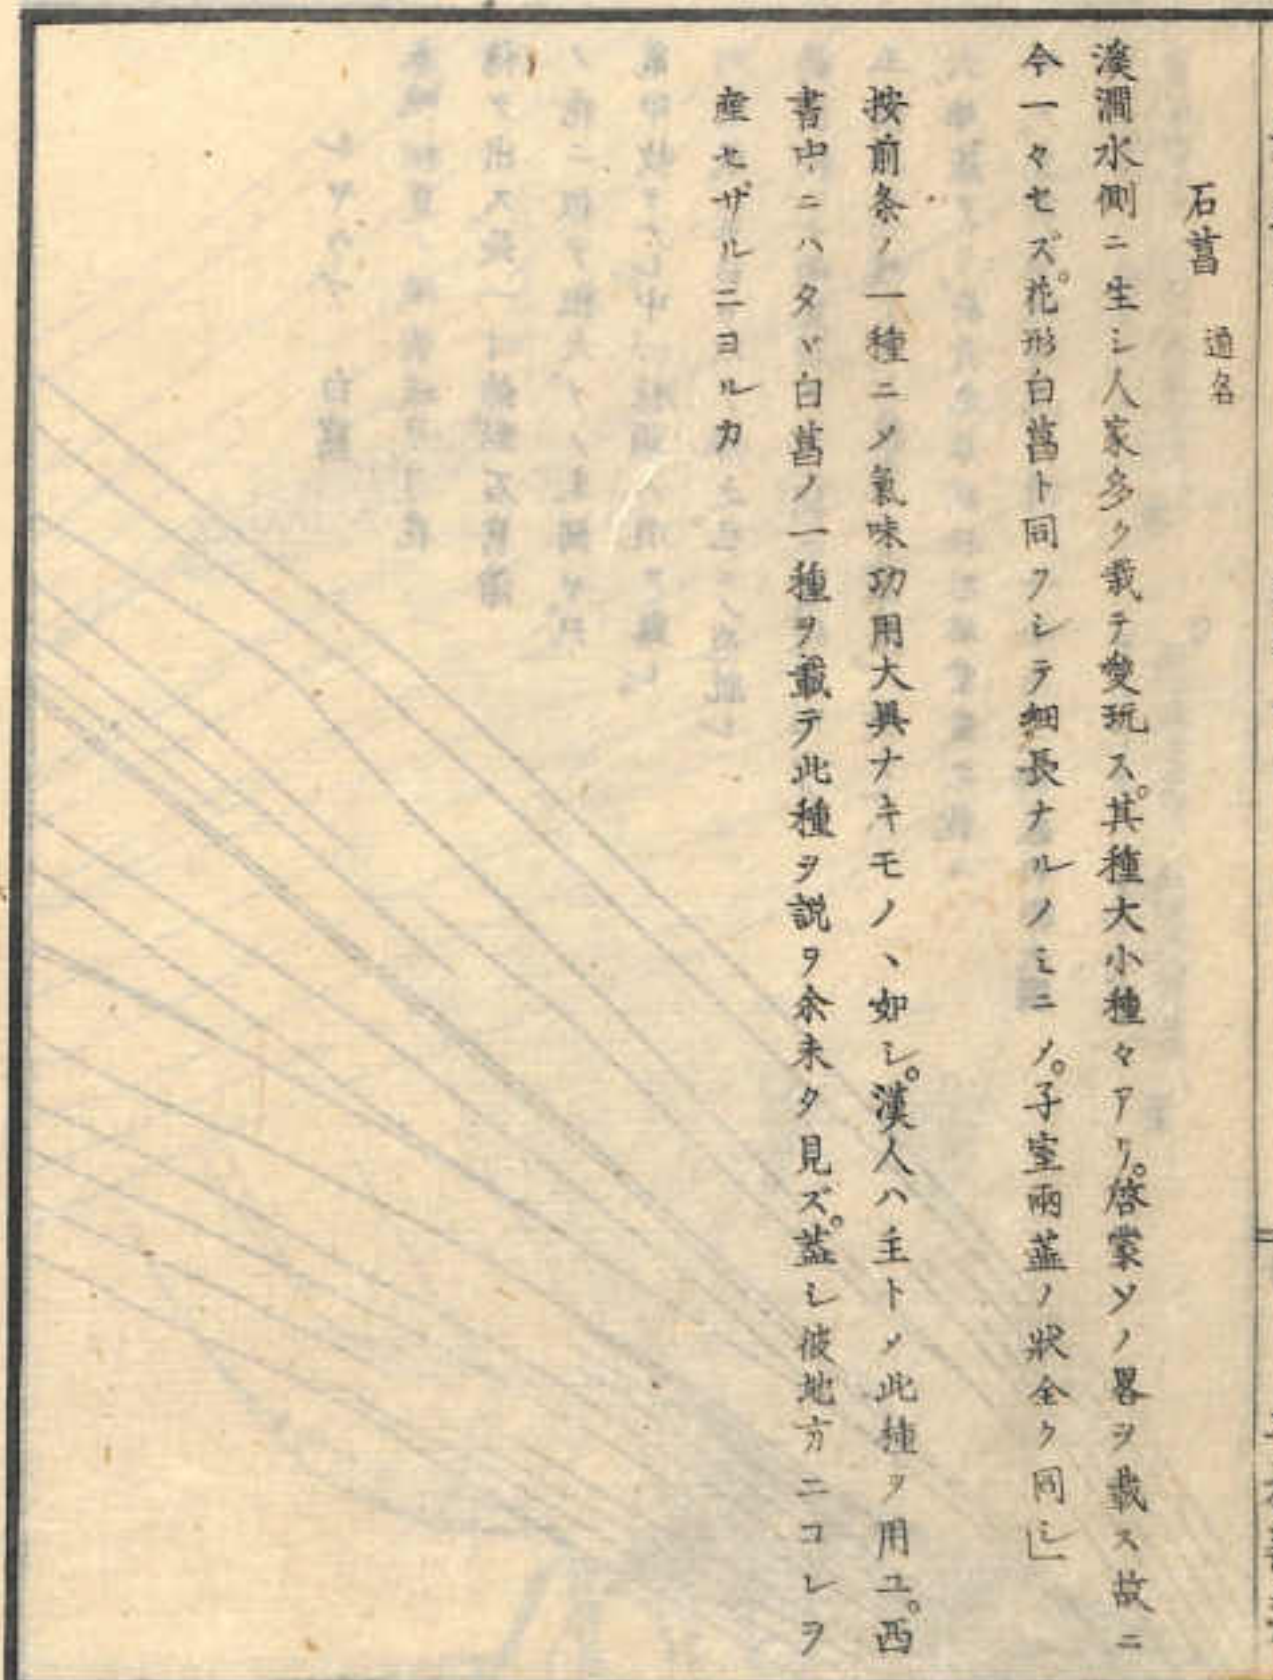 石菖 通名
溪澗水側ニ生シ人家多ク栽テ愛玩ス。其種大小種々アリ。啓蒙ソノ畧ヲ載ス故ニ
今一々セズ。花形白菖ト同クシテ細長ナルノミニ〆。子室兩蕋ノ狀全ク同シ」
按前条ノ一種ニ〆氣味功用大異ナキモノヽ如シ。漢人ハ主ト〆此種ヲ用ユ。西
書中ニハタヾ白菖ノ一種ヲ載テ此種ヲ説ヲ余未タ見ズ。蓋シ彼地方ニコレヲ
産セザルニヨルカ